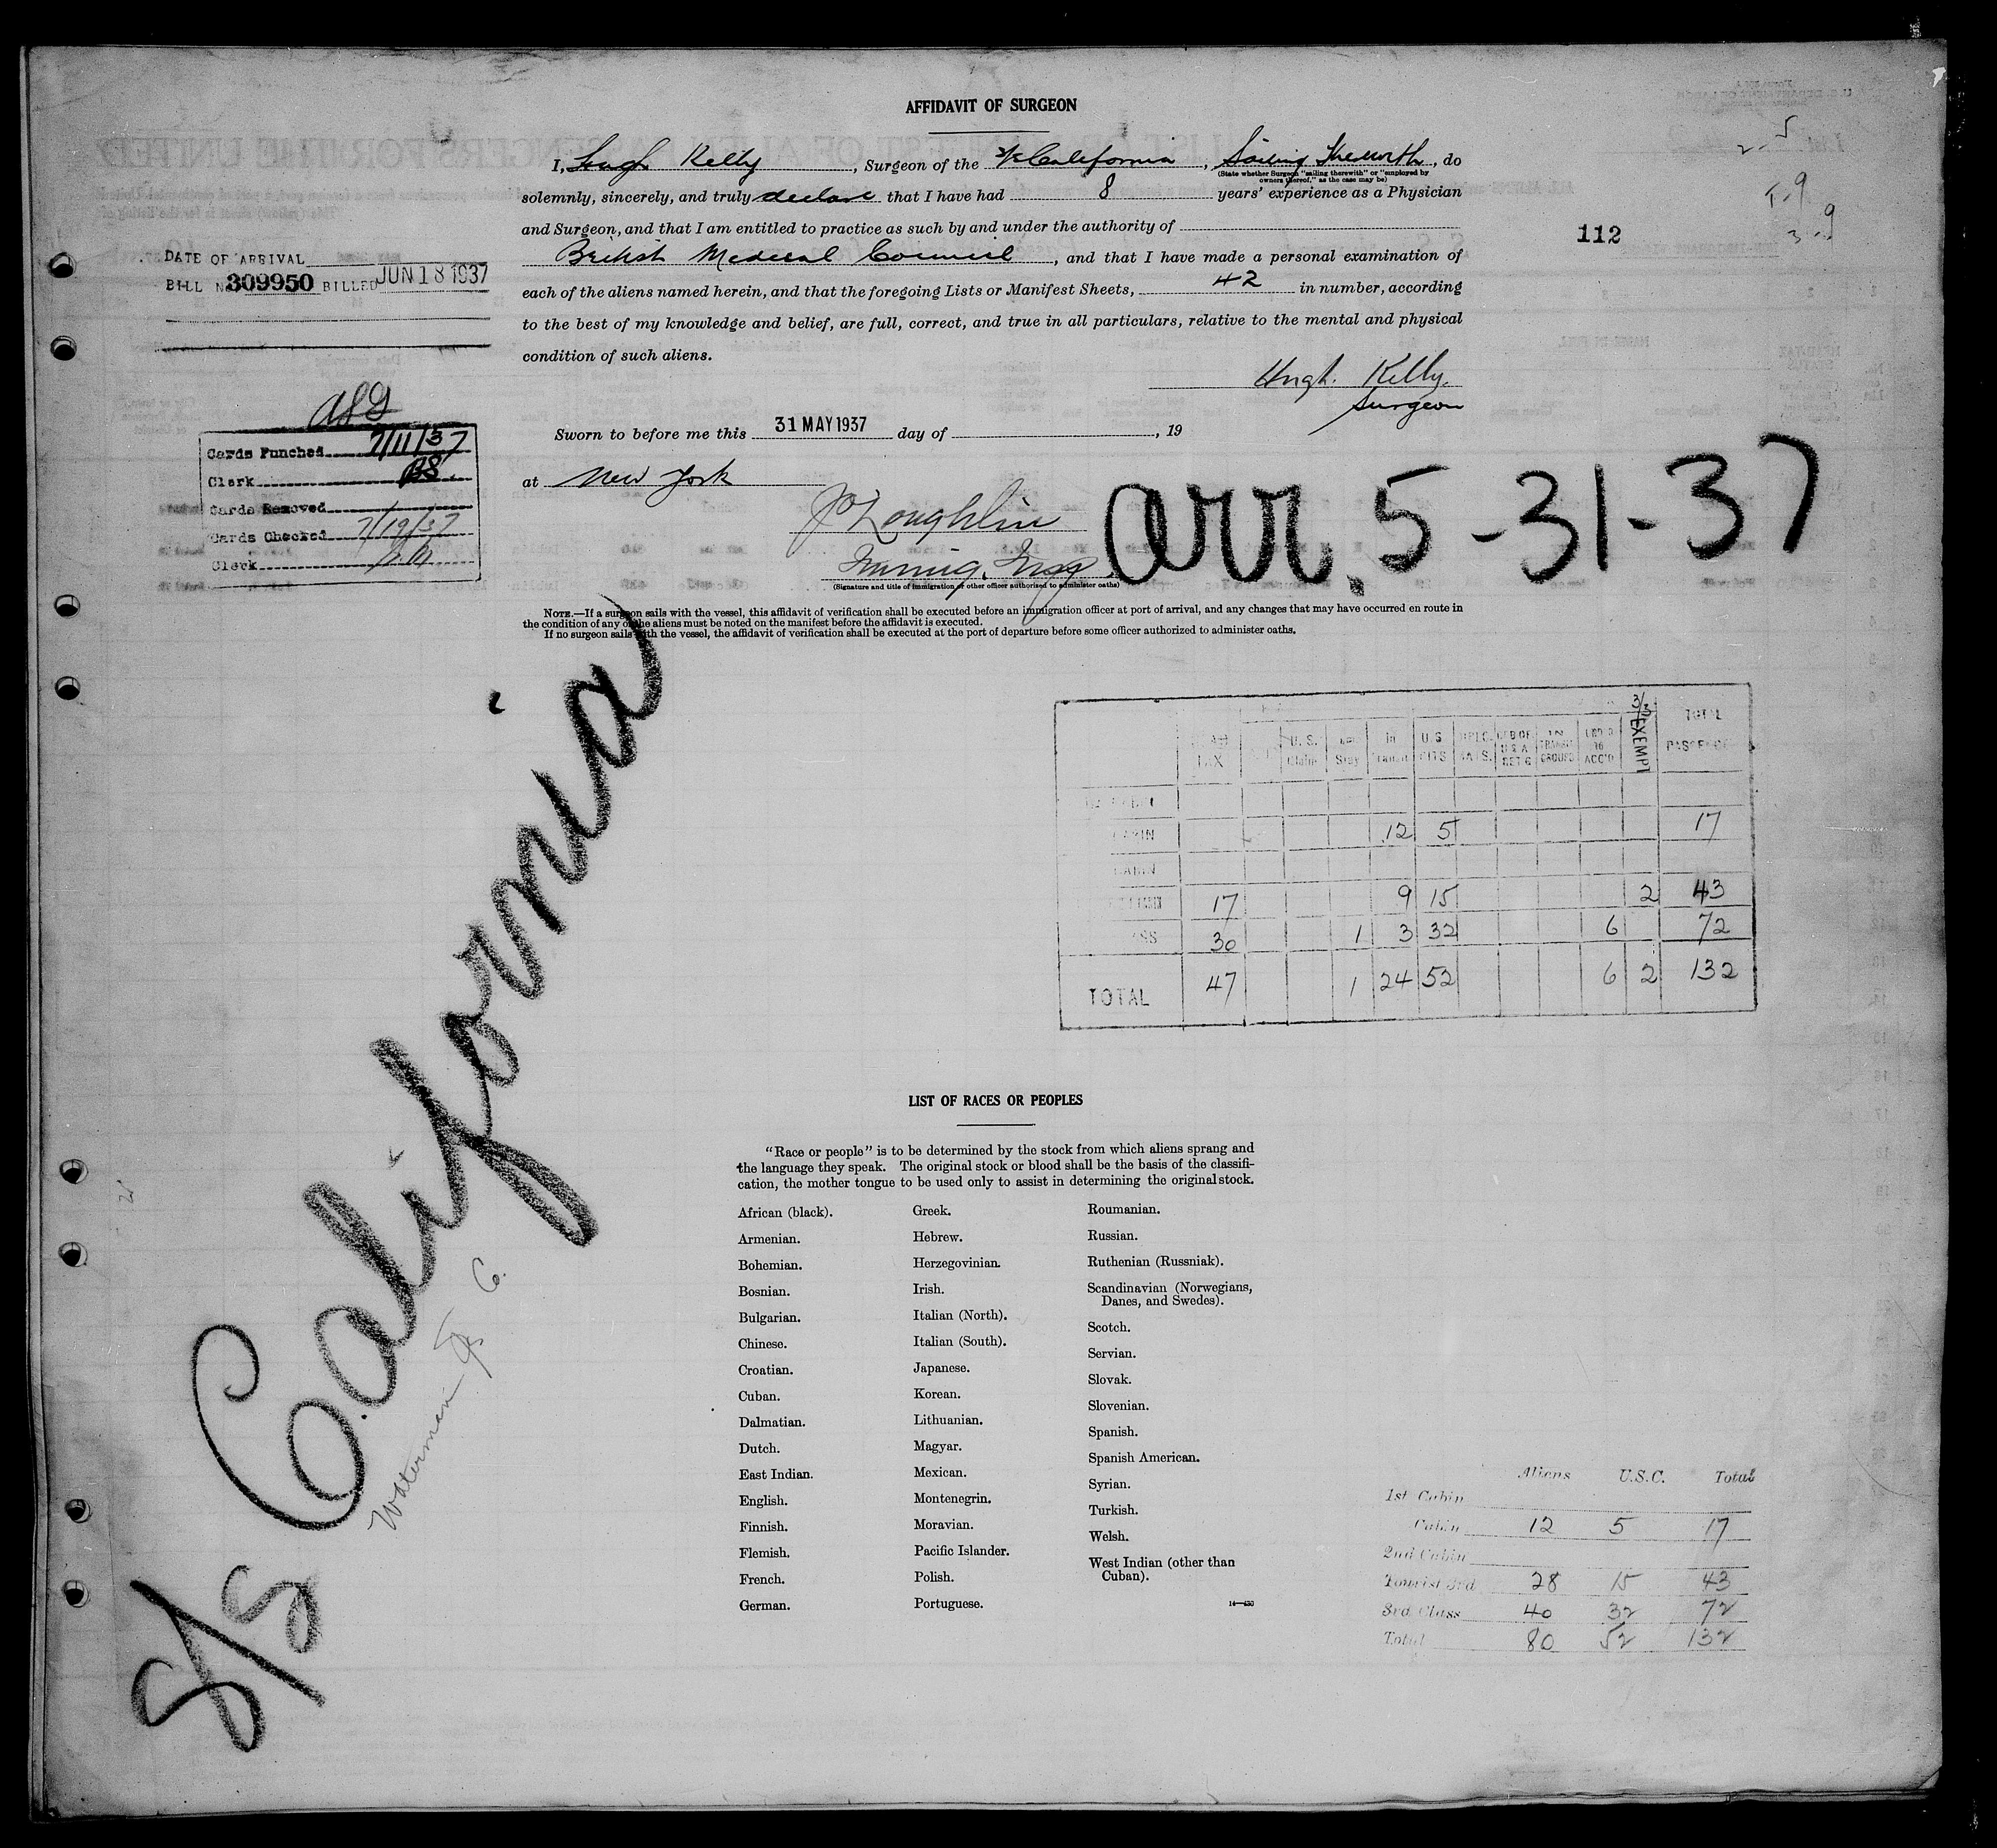 AFFIDAVIT OF SURGEON
I, Hugh Kelly, Surgeon of the S/S California, Sailing Therewith, do
(State whether Surgeon "sailing therewith" or "employed by
owners thereof," as the case may be)
solemnly, sincerely, and truly declare that I have had 8 years' experience as a Physician
and Surgeon, and that I am entitled to practice as such by and under the authority of
British Medical Council, and that I have made a personal examination of
each of the aliens named herein, and that the foregoing Lists or Manifest Sheets, 42 in number, according
to the best of my knowledge and belief, are full, correct, and true in all particulars, relative to the mental and physical
condition of such aliens.
Hugh Kelly.
Surgeon
Sworn to before me this 31 MAY 1937 day of , 19
at New York
Immig. Insp
(Signature and title of immigration or other officer authorized to administer oaths)
NOTE.—If a surgeon sails with the vessel, this affidavit of verification shall be executed before an immigration officer at port of arrival, and any changes that may have occurred en route in
the condition of any of the aliens must be noted on the manifest before the affidavit is executed.
If no surgeon sails with the vessel, the affidavit of verification shall be executed at the port of departure before some officer authorized to administer oaths.
112
DATE OF ARRIVAL
BILL No 309950 BILLED JUN 18 1937
Cards Punched 7/11/37
Clerk BS.
Cards Removed
Cards Checked 7/19/37
Clerk
arr. 5-31-37
S/S California
Waterman
Co.
3/3
TAX U.S. Claim Stay In U S CITS IN TRANSIT GROUPS ACC'D EXEMPT TOTAL
CABIN 12 5 17
CABIN
17 9 15 2 43
30 1 3 32 6 72
TOTAL 47 1 24 52 6 2 132
LIST OF RACES OR PEOPLES
"Race or people" is to be determined by the stock from which aliens sprang and
the language they speak. The original stock or blood shall be the basis of the classifi-
cation, the mother tongue to be used only to assist in determining the original stock.
African (black).
Armenian.
Bohemian.
Bosnian.
Bulgarian.
Chinese.
Croatian.
Cuban.
Dalmatian.
Dutch.
East Indian.
English.
Finnish.
Flemish.
French.
German.
Greek.
Hebrew.
Herzegovinian.
Irish.
Italian (North).
Italian (South).
Japanese.
Korean.
Lithuanian.
Magyar.
Mexican.
Montenegrin.
Moravian.
Pacific Islander.
Polish.
Portuguese.
Roumanian.
Russian.
Ruthenian (Russniak).
Scandinavian (Norwegians,
Danes, and Swedes).
Scotch.
Servian.
Slovak.
Slovenian.
Spanish.
Spanish American.
Syrian.
Turkish.
Welsh.
West Indian (other than
Cuban).
Aliens U.S.C. Total
1st Cabin
Cabin 12 5 17
2nd Cabin
Tourist 3rd 28 15 43
3rd Class 40 32 72
Total 80 52 132